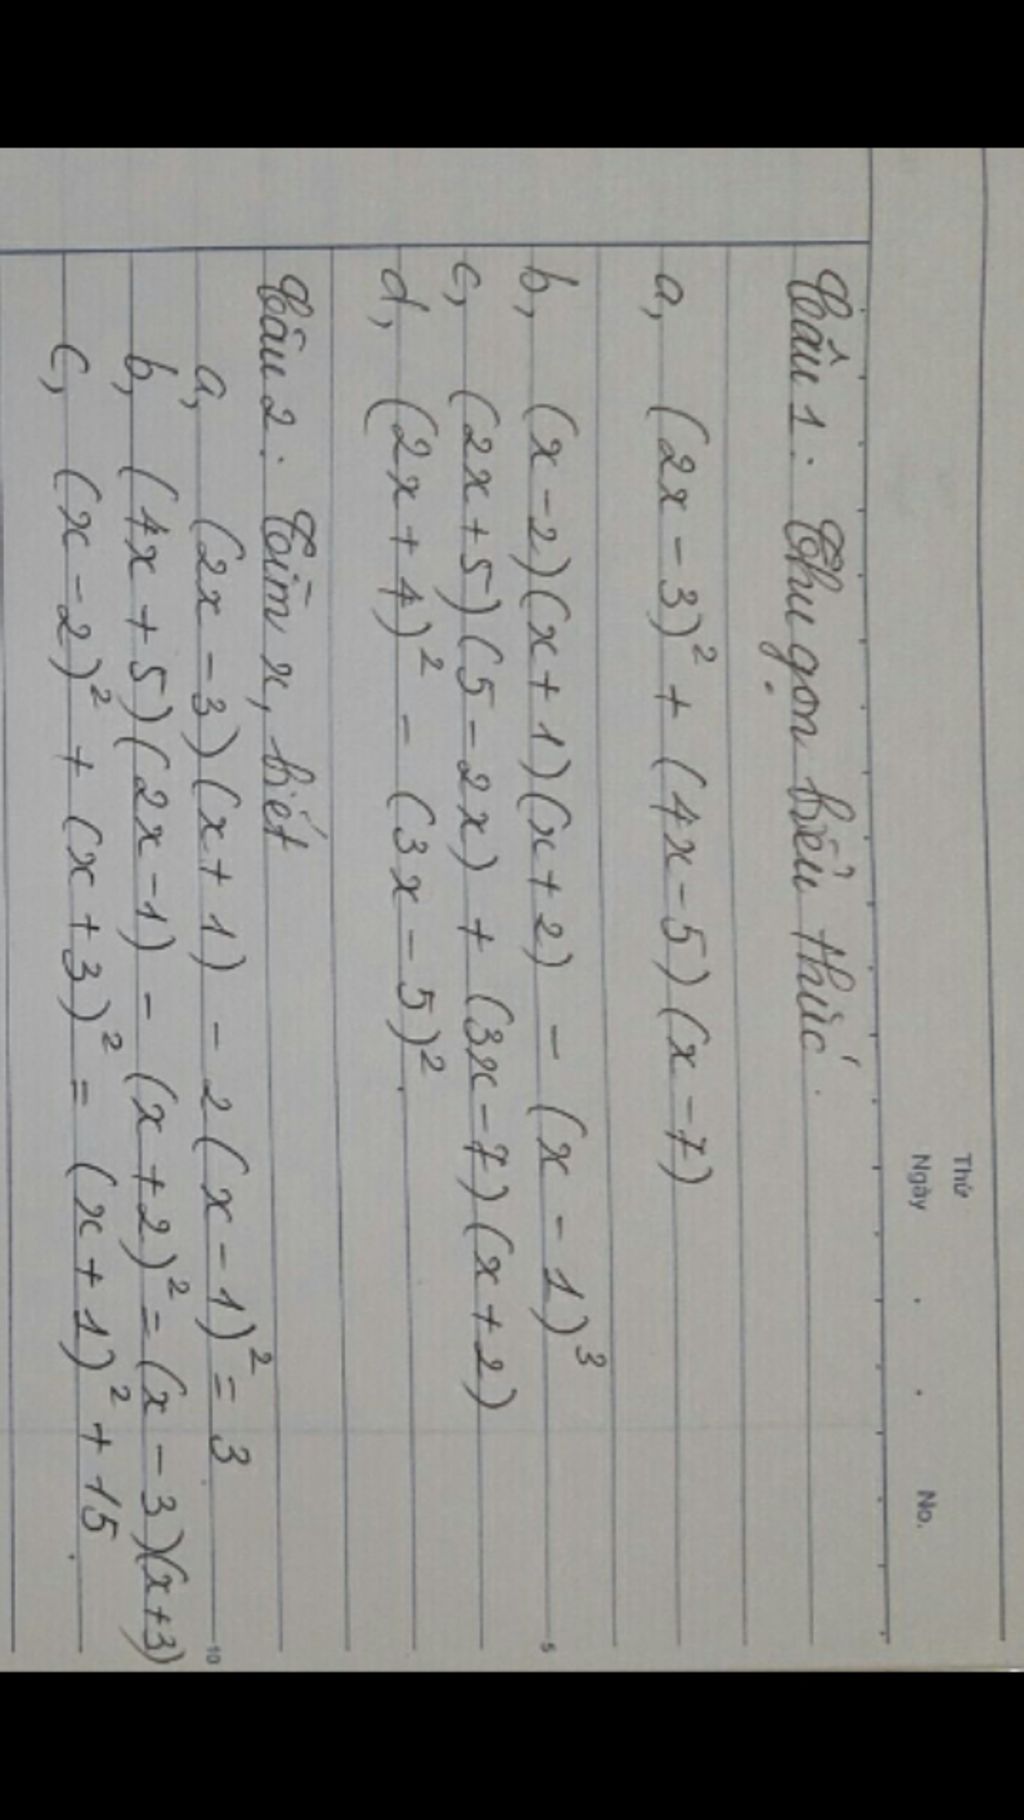 Thứ
Ngày . . No.
Câu 1: Thu gọn biểu thức.
a, (2x - 3)² + (4x - 5)(x - 7)
b, (x - 2)(x + 1)(x + 2) - (x - 1)³
5
c, (2x + 5)(5 - 2x) + (3x - 7)(x + 2)
d, (2x + 4)² - (3x - 5)².
Câu 2: Tìm x, biết
a, (2x - 3)(x + 1) - 2(x - 1)² = 3.
10
b, (4x + 5)(2x - 1) - (x + 2)² = (x - 3)(x + 3)
c, (x - 2)² + (x + 3)² = (x + 1)² + 15.